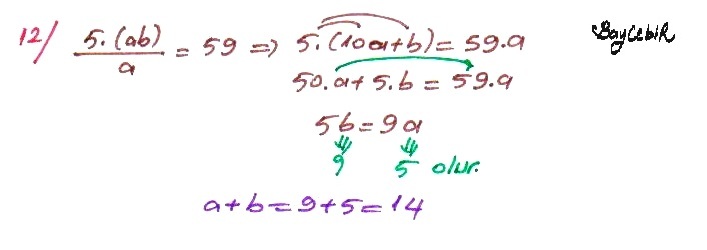 12/ 5.(ab)/a = 59 => 5.(10a+b) = 59.a
BayCebiR
50.a + 5.b = 59.a
5b = 9a
9 5 olur.
a+b = 9+5 = 14